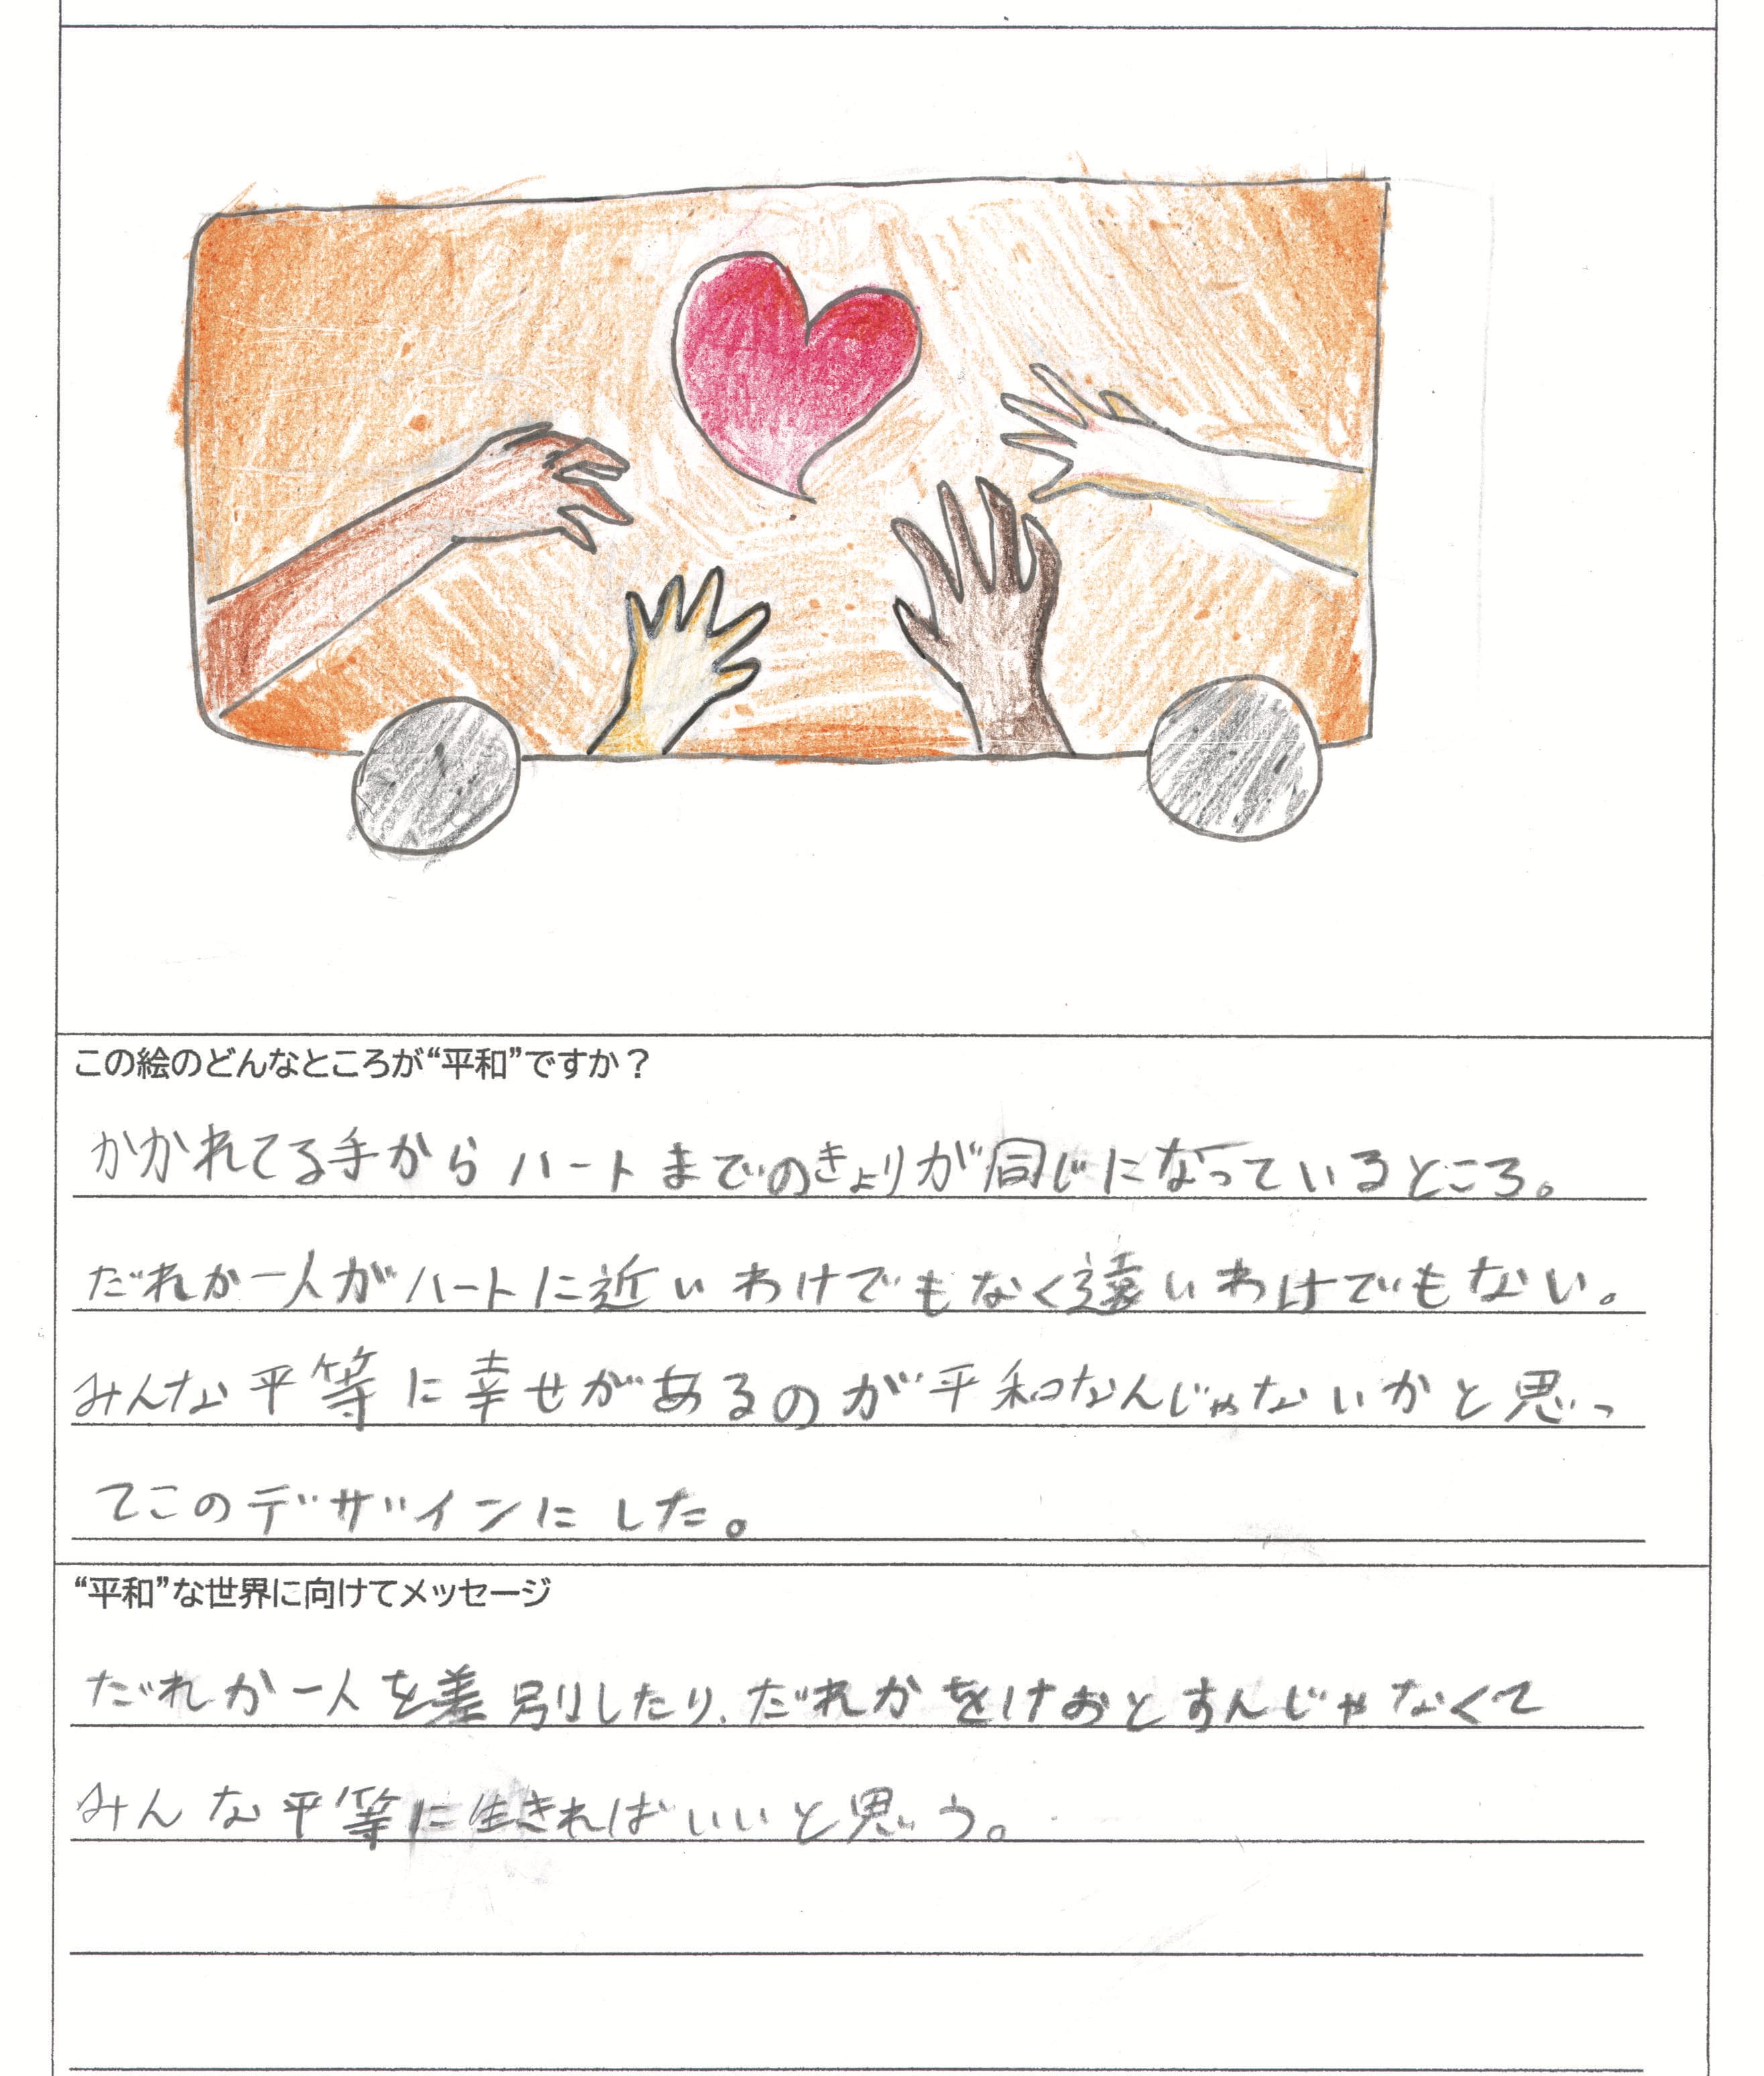 この絵のどんなところが“平和”ですか？
かかれてる手からハートまでのきょりが同じになっているところ。
だれか一人がハートに近いわけでもなく遠いわけでもない。
みんな平等に幸せがあるのが平和なんじゃないかと思っ
てこのデザインにした。
“平和”な世界に向けてメッセージ
だれか一人を差別したり、だれかをけおとすんじゃなくて
みんな平等に生きればいいと思う。